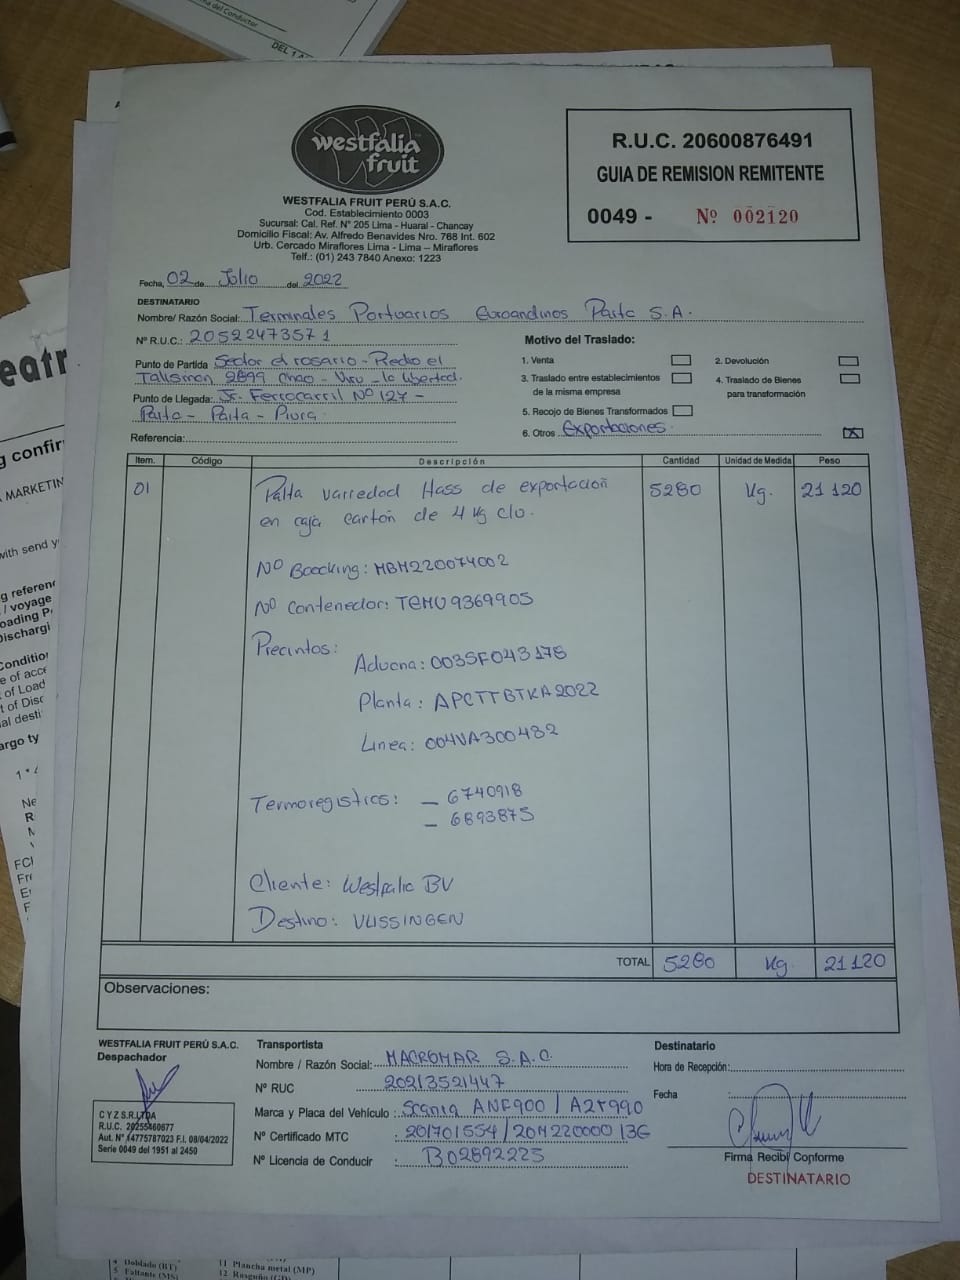 na del Conductor
DEL 1
westfalia
fruit
WESTFALIA FRUIT PERÚ S.A.C.
Cod. Establecimiento 0003
Sucursal: Cal. Ref. N° 205 Lima - Huaral - Chancay
Domicilio Fiscal: Av. Alfredo Benavides Nro. 768 Int. 602
Urb. Cercado Miraflores Lima - Lima – Miraflores
Telf.: (01) 243 7840 Anexo: 1223
R.U.C. 20600876491
GUIA DE REMISION REMITENTE
0049 - Nº 002120
Fecha, 02 de Julio del 2022
DESTINATARIO
Nombre/ Razón Social: Terminales Portuarios Euroandinos Paita S.A.
Nº R.U.C.: 20522473571
Punto de Partida Sector el rosario - Predio el
Talisman 2899 Chao - Viru - la libertad.
Punto de Llegada: Jr. Ferrocarril Nº 127 -
Paita - Paita - Piura.
Referencia:
Motivo del Traslado:
1. Venta
2. Devolución
3. Traslado entre establecimientos
de la misma empresa
4. Traslado de Bienes
para transformación
5. Recojo de Bienes Transformados
6. Otros Exportaciones. X
Item. Código Descripción Cantidad Unidad de Medida Peso
01 Palta variedad Hass de exportación 5280 Kg. 21 120
en caja cartón de 4 Kg c/u.
Nº Boocking: MBM220074002
Nº Contenedor: TEMU9369905
Precintos:
Aduana: 0035F043178
Planta: APCTTBTKA2022
Linea: 004VA300482
Termoregistros: - 6740918
- 6893875
Cliente: Westfalia BV
Destino: VLISSINGEN
TOTAL 5280 Kg. 21120
Observaciones:
WESTFALIA FRUIT PERÚ S.A.C.
Despachador
C Y Z S.R.LTDA
R.U.C. 20255460677
Aut. N° 14775787023 F.I. 08/04/2022
Serie 0049 del 1951 al 2450
Transportista
Nombre / Razón Social: MACROMAR S.A.C.
Nº RUC 20213521447
Marca y Placa del Vehículo: Scania ANF900 / A2T990
Nº Certificado MTC : 201701554 / 20M220000136
Nº Licencia de Conducir : B02892225
Destinatario
Hora de Recepción:
Fecha
Firma Recibí Conforme
DESTINATARIO
eatr
g confir
MARKETIN
with send y
g referen
/ voyage
oading P
Dischargi
Conditio
e of acce
t of Load
t of Disc
al desti
argo ty
4 Doblado (BT)
5 Faltante (MS)
11 Plancha metal (MP)